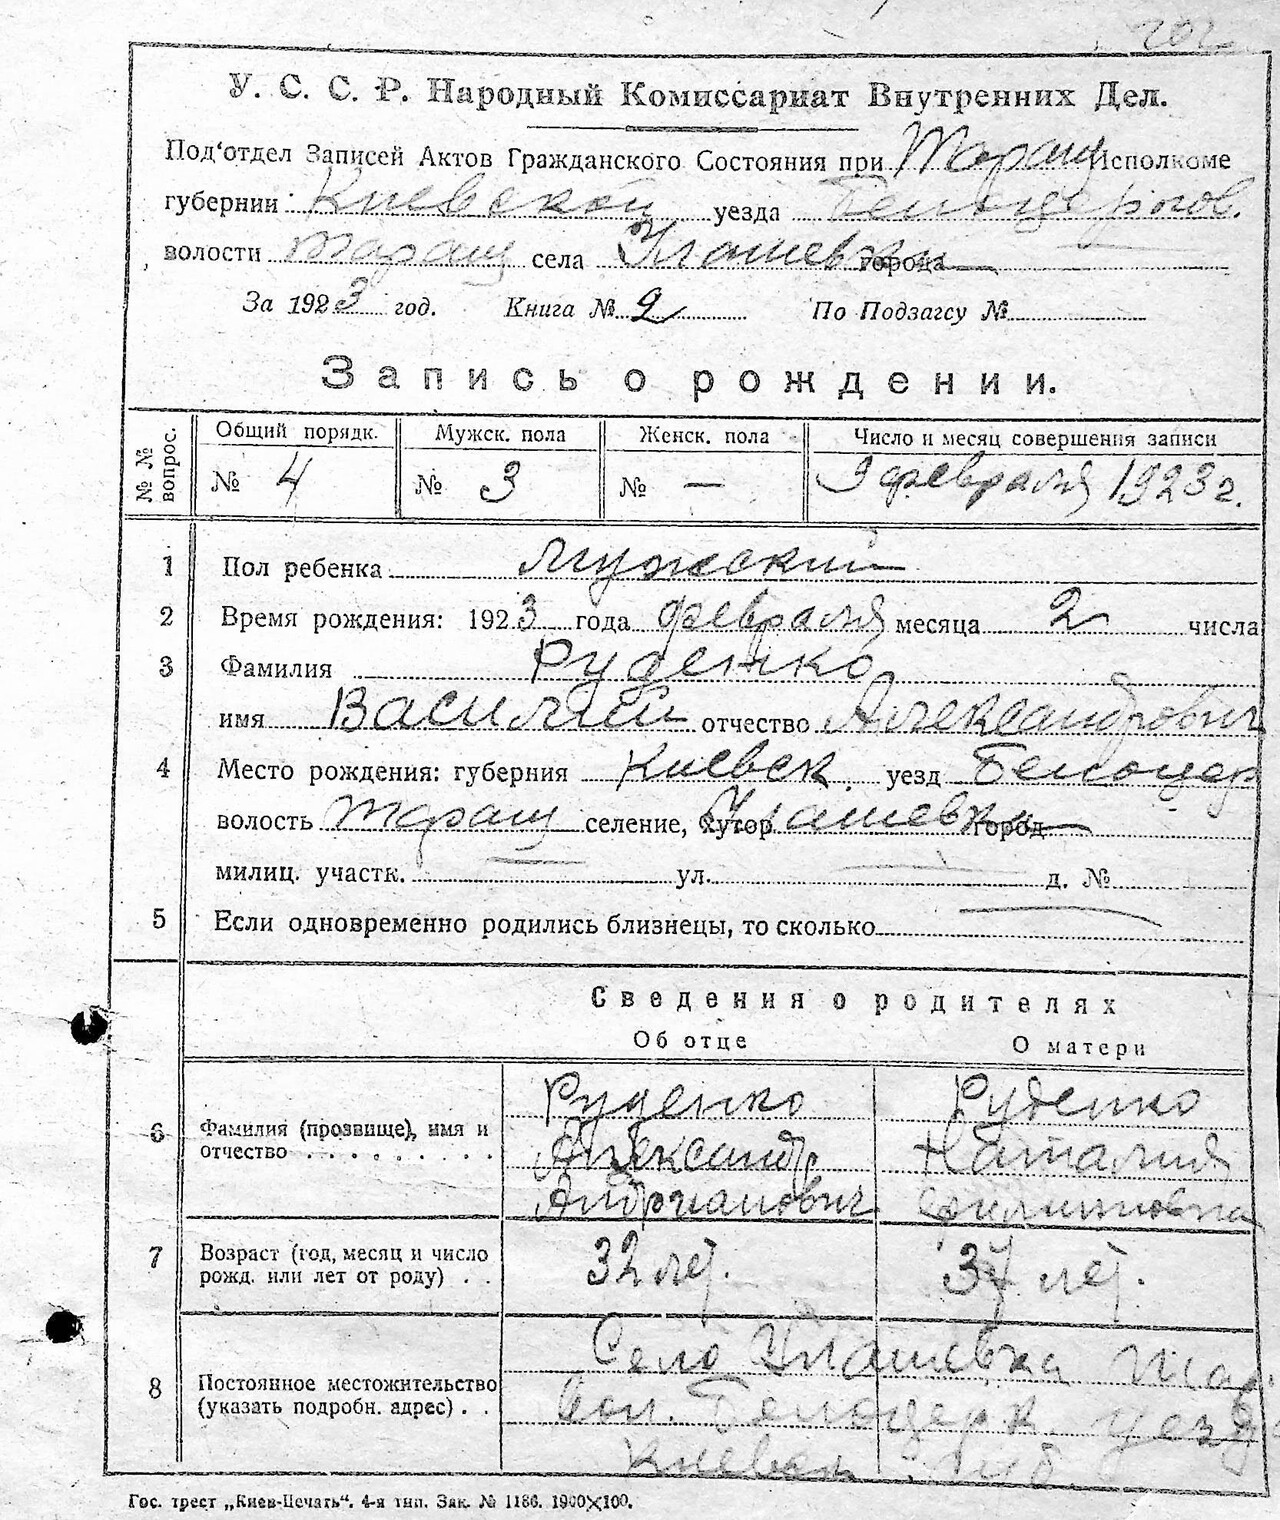 У. С. С. Р. Народный Комиссариат Внутренних Дел.
Под‘отдел Записей Актов Гражданского Состояния при Таращ Исполкоме
губернии Киевской уезда Белоцерков.
волости Таращ села Улашевки города
За 1923 год. Книга № 2 По Подзагсу №
Запись о рождении.
№ № вопрос.
Общий порядк. Мужск. пола Женск. пола Число и месяц совершения записи
№ 4 № 3 № — 9 февраля 1923 г.
1 Пол ребенка мужеский
2 Время рождения: 1923 года февраля месяца 2 числа
3 Фамилия Руденко
имя Василий отчество Александрович
4 Место рождения: губерния Киевск. уезд Белоцер
волость Таращ селение, хутор Улашевка город
милиц. участк. ул. д. №
5 Если одновременно родились близнецы, то сколько
Сведения о родителях
Об отце О матери
6 Фамилия (прозвище), имя и отчество
Руденко Александр Андрианович
Руденко Наталия Филиповна
7 Возраст (год, месяц и число рожд. или лет от роду)
32 лет. 37 лет.
8 Постоянное местожительство (указать подробн. адрес)
Село Улашевка Тар.
Вол. Белоцерк. уезда
Киевск. губ.
Гос. трест „Киев-Печать“. 4-я тип. Зак. № 1186. 1900×100.